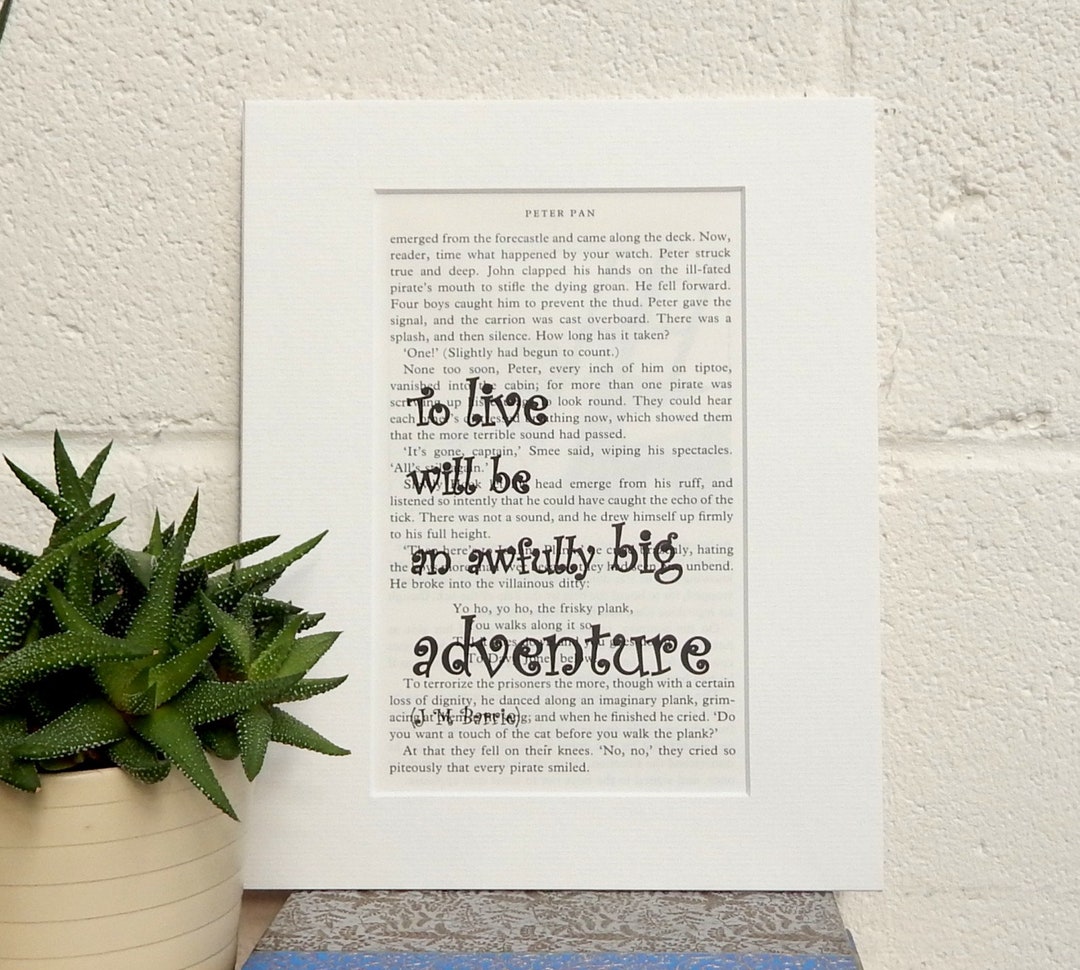 PETER PAN
emerged from the forecastle and came along the deck. Now,
reader, time what happened by your watch. Peter struck
true and deep. John clapped his hands on the ill-fated
pirate's mouth to stifle the dying groan. He fell forward.
Four boys caught him to prevent the thud. Peter gave the
signal, and the carrion was cast overboard. There was a
splash, and then silence. How long has it taken?
'One!' (Slightly had begun to count.)
None too soon, Peter, every inch of him on tiptoe,
vanished into the cabin; for more than one pirate was
up look round. They could hear
To live
each now, which showed them
that the more terrible sound had passed.
'It's gone, captain,' Smee said, wiping his spectacles.
'All's
will be
head emerge from his ruff, and
listened so intently that he could have caught the echo of the
tick. There was not a sound, and he drew himself up firmly
to his full height.
hating
an awfully big
the unbend.
He broke into the villainous ditty:
Yo ho, yo ho, the frisky plank,
You walks along it so,
adventure
To
To terrorize the prisoners the more, though with a certain
loss of dignity, he danced along an imaginary plank, grim-
and when he finished he cried. 'Do
(J M Barrie)
you want a touch of the cat before you walk the plank?'
At that they fell on their knees. 'No, no,' they cried so
piteously that every pirate smiled.